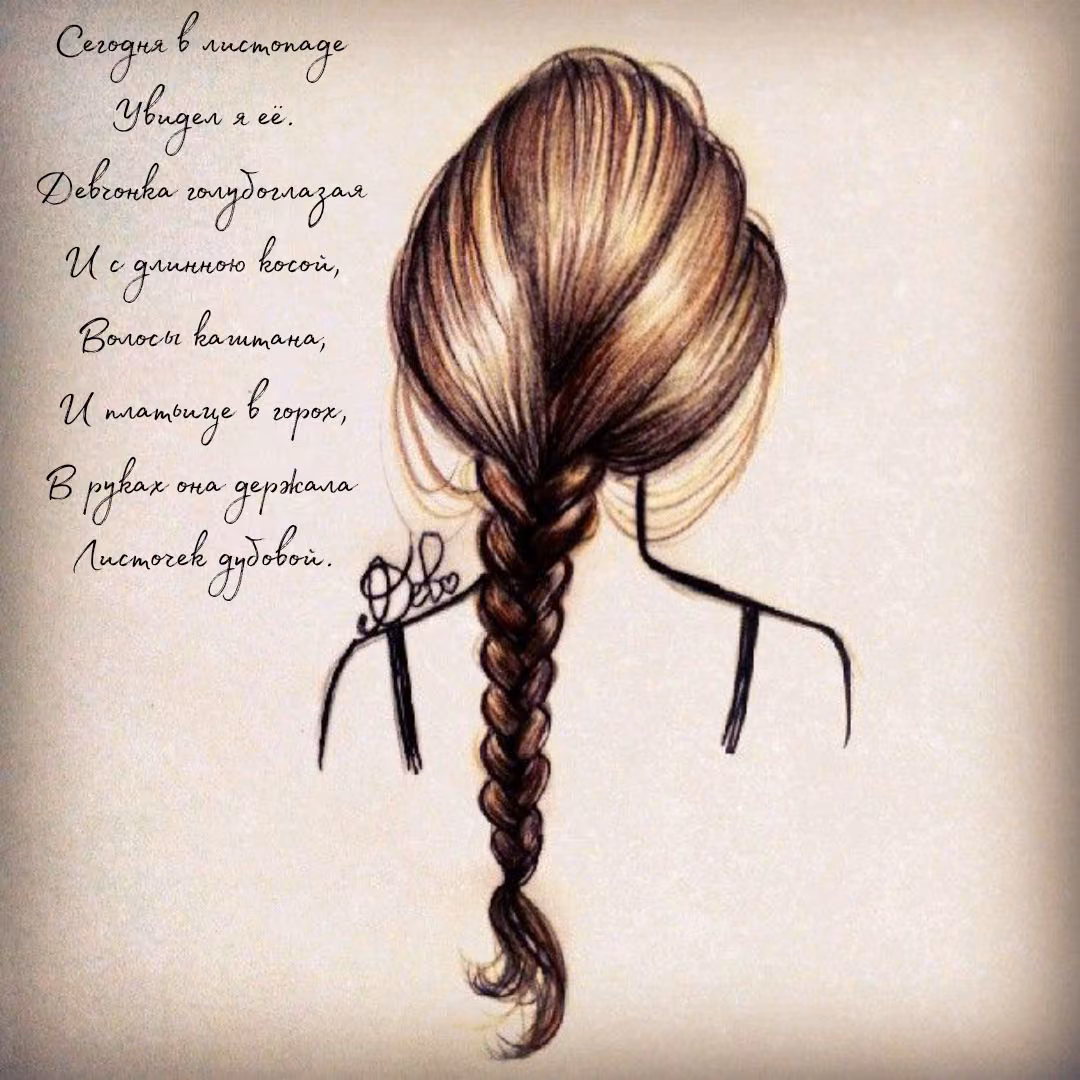 Сегодня в листопаде
Увидел я её.
Девчонка голубоглазая
И с длинною косой,
Волосы каштана,
И платьице в горох,
В руках она держала
Листочек дубовой.